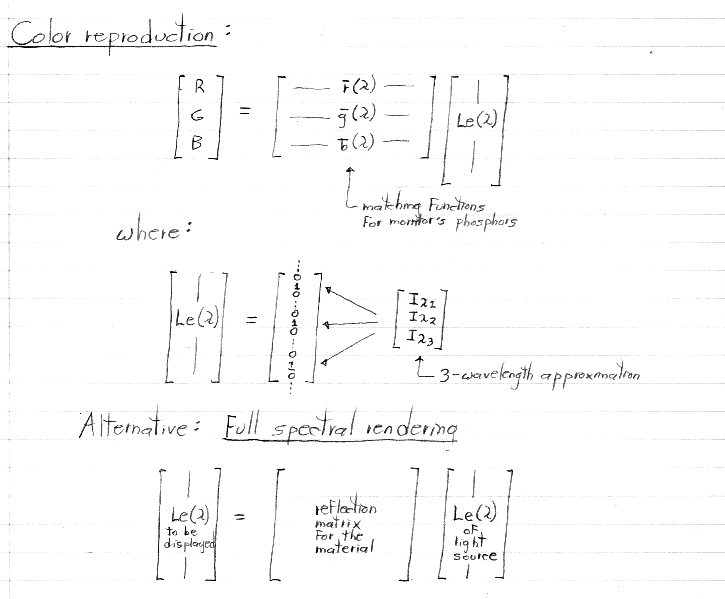 Color reproduction:
R
G
B
=
r̄(λ)
ḡ(λ)
b̄(λ)
Le(λ)
matching Functions
For monitor's phosphors
where:
Le(λ)
=
⋮
0
1
0
⋮
0
1
0
⋮
0
1
0
⋮
Iλ1
Iλ2
Iλ3
3-wavelength approximation
Alternative: Full spectral rendering
Le(λ)
to be
displayed
=
reflection
matrix
For the
material
Le(λ)
of
light
source